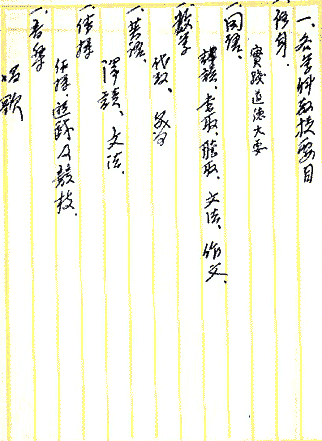 一、各学科教授要目
一、修身.
實践道徳大要
一、国語、
講読、書取、聴取、文法、作文、
一、数学
代数、幾何
一、英語、
譯読、文法、
一、体操
体操、遊戯及競技、
一、音楽
唱歌